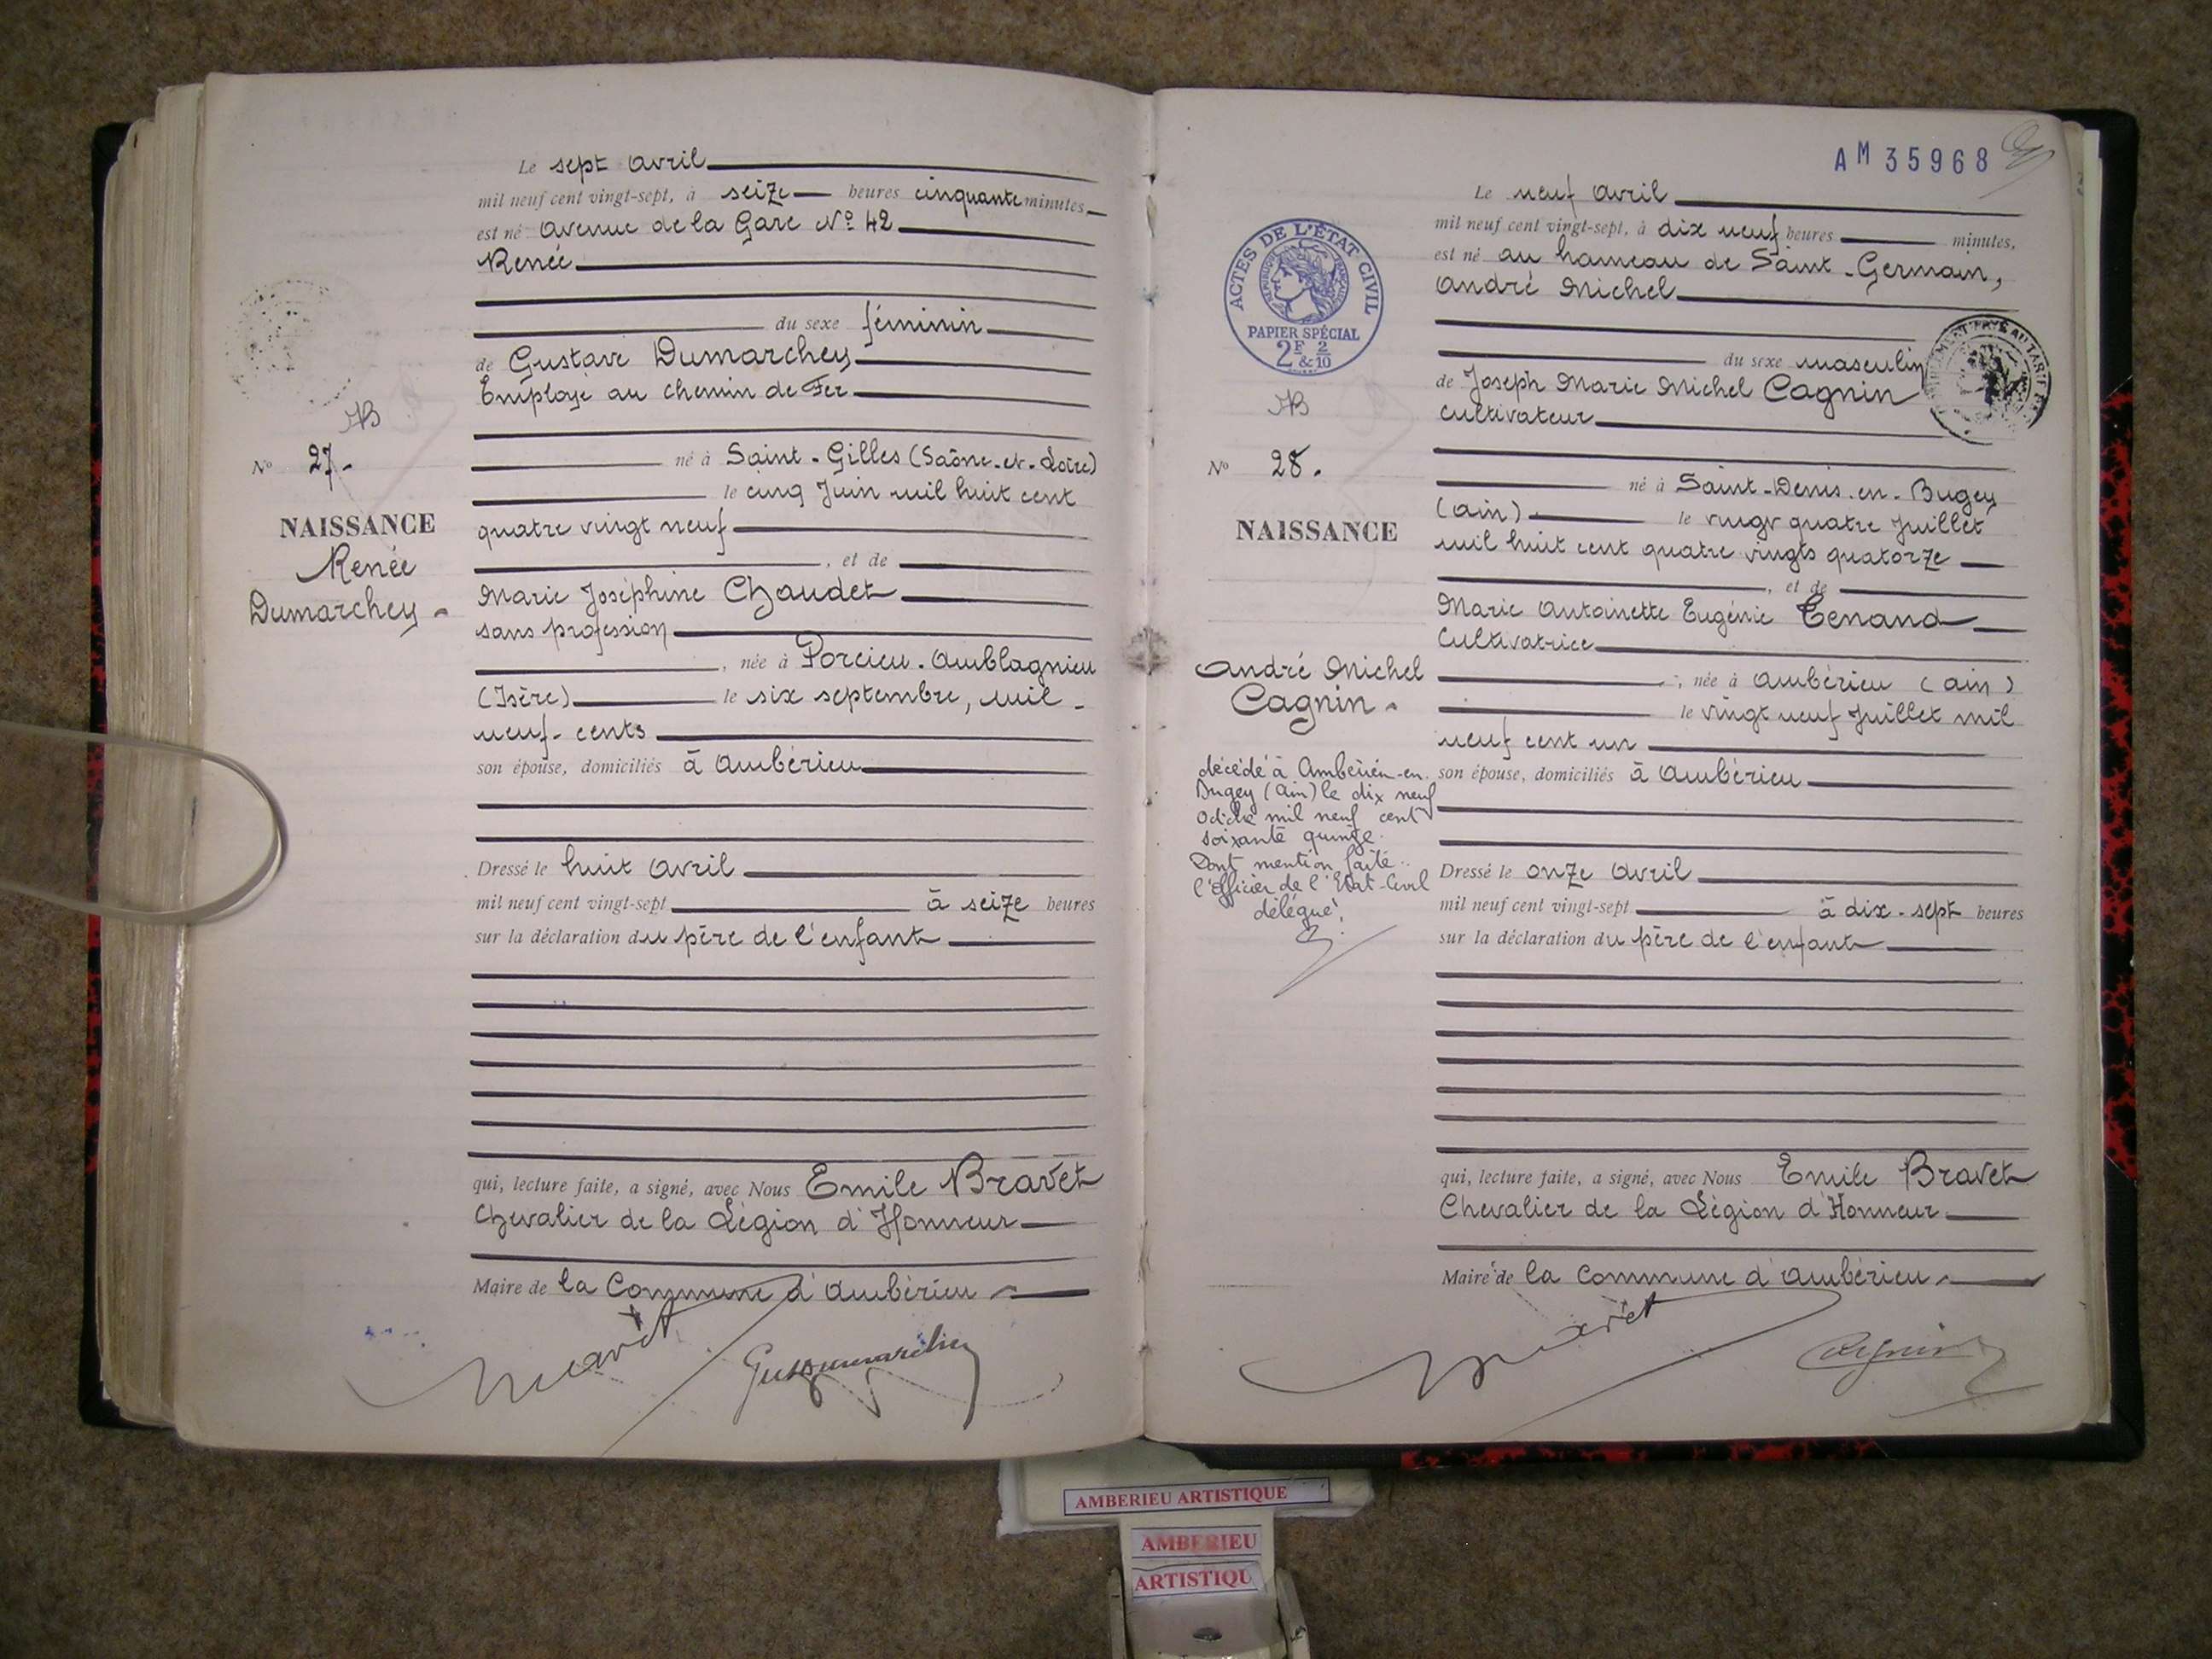 Le sept avril
mil neuf cent vingt-sept, à seize heures cinquante minutes
est né avenue de la Gare N° 42
Renée
du sexe féminin
de Gustave Dumarchey
Employé au chemin de Fer
né à Saint-Gilles (Saône-et-Loire)
le cinq Juin mil huit cent
quatre vingt neuf
, et de
Marie Joséphine Chaudet
sans profession
, née à Porcieu-Amblagnieu
(Isère) le six septembre, mil
neuf-cents
son épouse, domiciliés à Ambérieu
Dressé le huit avril
mil neuf cent vingt-sept à seize heures
sur la déclaration du père de l'enfant
qui, lecture faite, a signé, avec Nous Emile Bravet
Chevalier de la Légion d'Honneur
Maire de la Commune d'Ambérieu
N° 27.
NAISSANCE
Renée
Dumarchey
AM 35968
Le neuf avril
mil neuf cent vingt-sept, à dix neuf heures minutes,
est né au hameau de Saint-Germain,
André Michel
du sexe masculin
de Joseph Marie Michel Cagnin
cultivateur
né à Saint-Denis-en-Bugey
(Ain) le vingt quatre Juillet
mil huit cent quatre vingts quatorze
, et de
Marie Antoinette Eugénie Tenand
Cultivatrice
, née à Ambérieu (Ain)
le vingt neuf Juillet mil
neuf cent un
son épouse, domiciliés à Ambérieu
Dressé le onze avril
mil neuf cent vingt-sept à dix-sept heures
sur la déclaration du père de l'enfant
qui, lecture faite, a signé, avec Nous Emile Bravet
Chevalier de la Légion d'Honneur
Maire de la Commune d'Ambérieu
Cagnin
ACTES DE L'ÉTAT CIVIL
PAPIER SPÉCIAL
2F & 2/10
N° 28.
NAISSANCE
André Michel
Cagnin
décédé à Ambérieu-en-
Bugey (Ain) le dix neuf
mil neuf cent
soixante quinze.
Dont mention faite.
l'Officier de l'Etat-Civil
délégué,
AMBERIEU ARTISTIQUE
AMBERIEU
ARTISTIQU